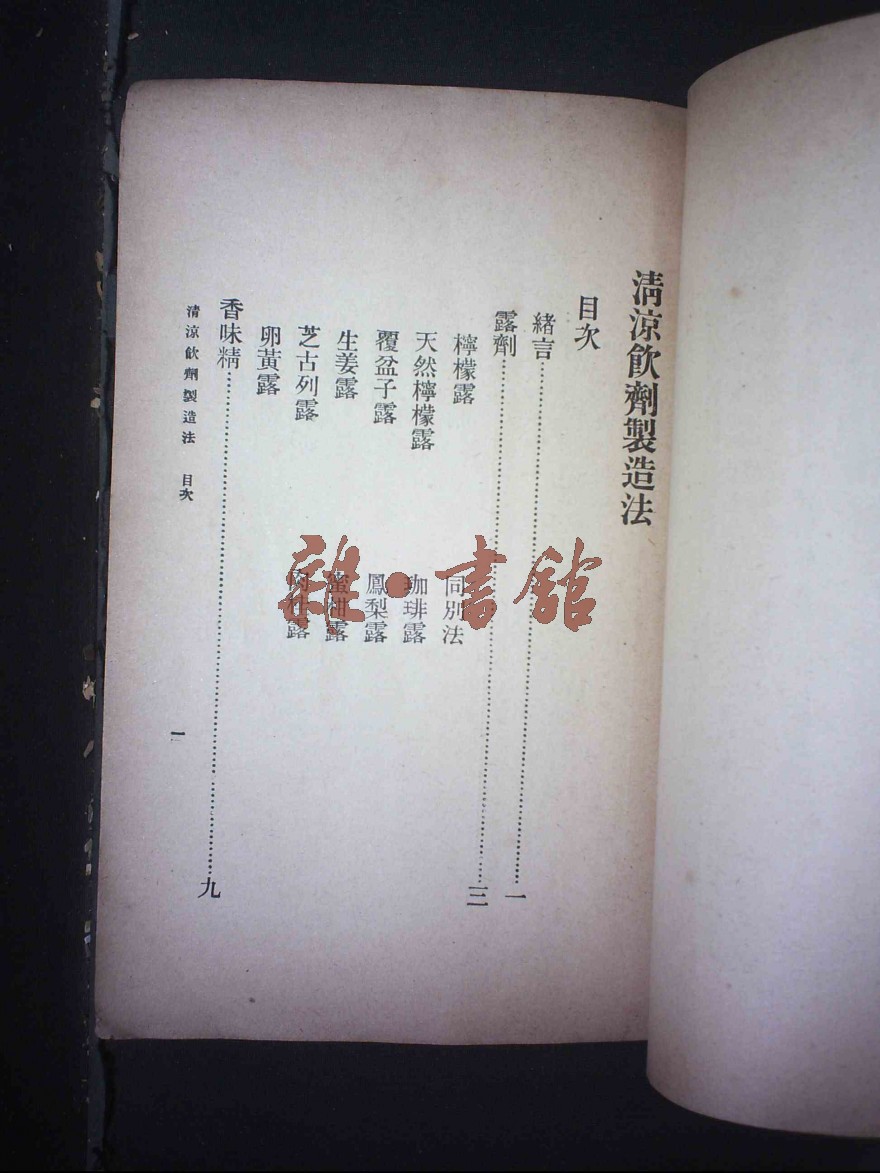 清涼飲劑製造法
目次
緒言⋯⋯⋯⋯⋯⋯⋯⋯⋯⋯⋯⋯⋯⋯一
露劑⋯⋯⋯⋯⋯⋯⋯⋯⋯⋯⋯⋯⋯⋯三
檸檬露　同別法
天然檸檬露　珈琲露
覆盆子露　鳳梨露
生姜露　蜜柑露
芝古列露　肉桂露
卵黃露
香味精⋯⋯⋯⋯⋯⋯⋯⋯⋯⋯⋯⋯⋯⋯九
清涼飲劑製造法　目次
一
雜·書館